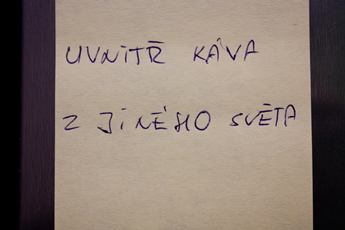 UVNITŘ KÁVA
Z JINÉHO SVĚTA